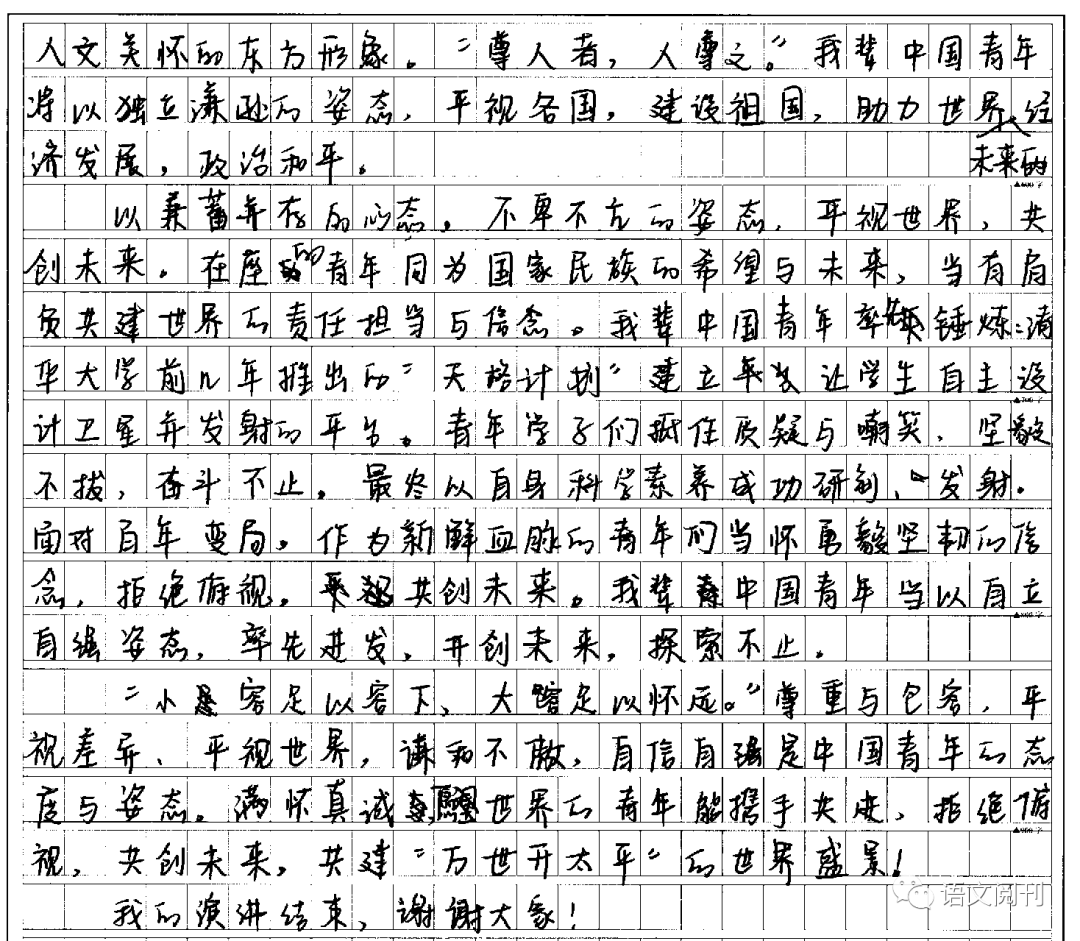 人文关怀的东方形象。“尊人者，人尊之。”我辈中国青年
将以独立谦逊的姿态，平视各国，建设祖国，助力世界经
未来的
济发展，政治和平。
▲600字
以兼蓄并存的心态，不卑不亢的姿态，平视世界，共
创未来。在座的青年同为国家民族的希望与未来，当有肩
负共建世界的责任担当与信念。我辈中国青年率先锤炼：清
华大学前几年推出的“天格计划”建立让学生自主设
▲700字
计卫星并发射的平台。青年学子们抵住质疑与嘲笑，坚毅
不拔，奋斗不止，最终以自身科学素养成功研制、发射。
面对百年变局，作为新鲜血脉的青年们当怀勇毅坚韧的信
念，拒绝俯视，共创未来。我辈中国青年当以自立
▲800字
自强姿态，率先进发，开创未来，探索不止。
“小容足以容下，大容足以怀远。”尊重与包容，平
视差异、平视世界，谦和不傲，自信自强是中国青年的态
度与姿态。满怀真诚，世界的青年能携手共进，拒绝俯
▲900字
视，共创未来，共建“万世开太平”的世界盛景！
我的演讲结束，谢谢大家！
语文阅刊